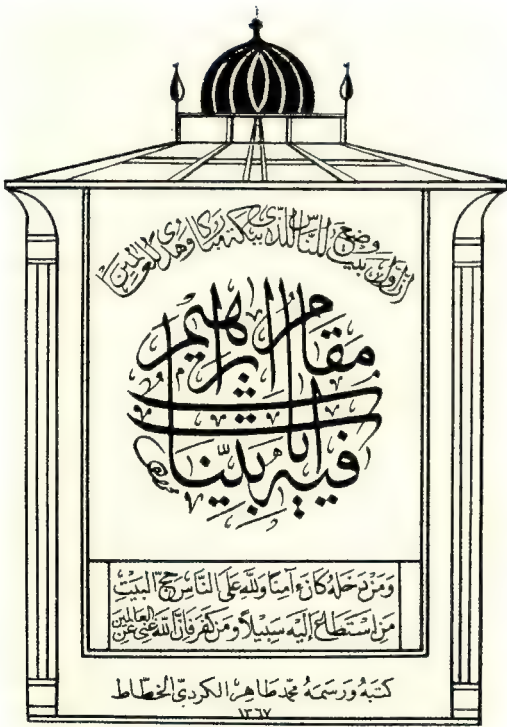 إن أول بيت وضع للناس للذي ببكة مباركا وهدى للعالمين
فيه آيات بينات
مقام إبراهيم
وَمَنْ دَخَلَهُ كَانَ آمِنًا وَلِلّٰهِ عَلَى النَّاسِ حَجُّ الْبَيْتِ
مَنِ اسْتَطَاعَ إِلَيْهِ سَبِيلًا وَمَنْ كَفَرَ فَإِنَّ اللّٰهَ غَنِيٌّ عَنِ الْعَالَمِينَ
كتبه ورسمه محمد طاهر الكردي الخطاط
١٣٦٧